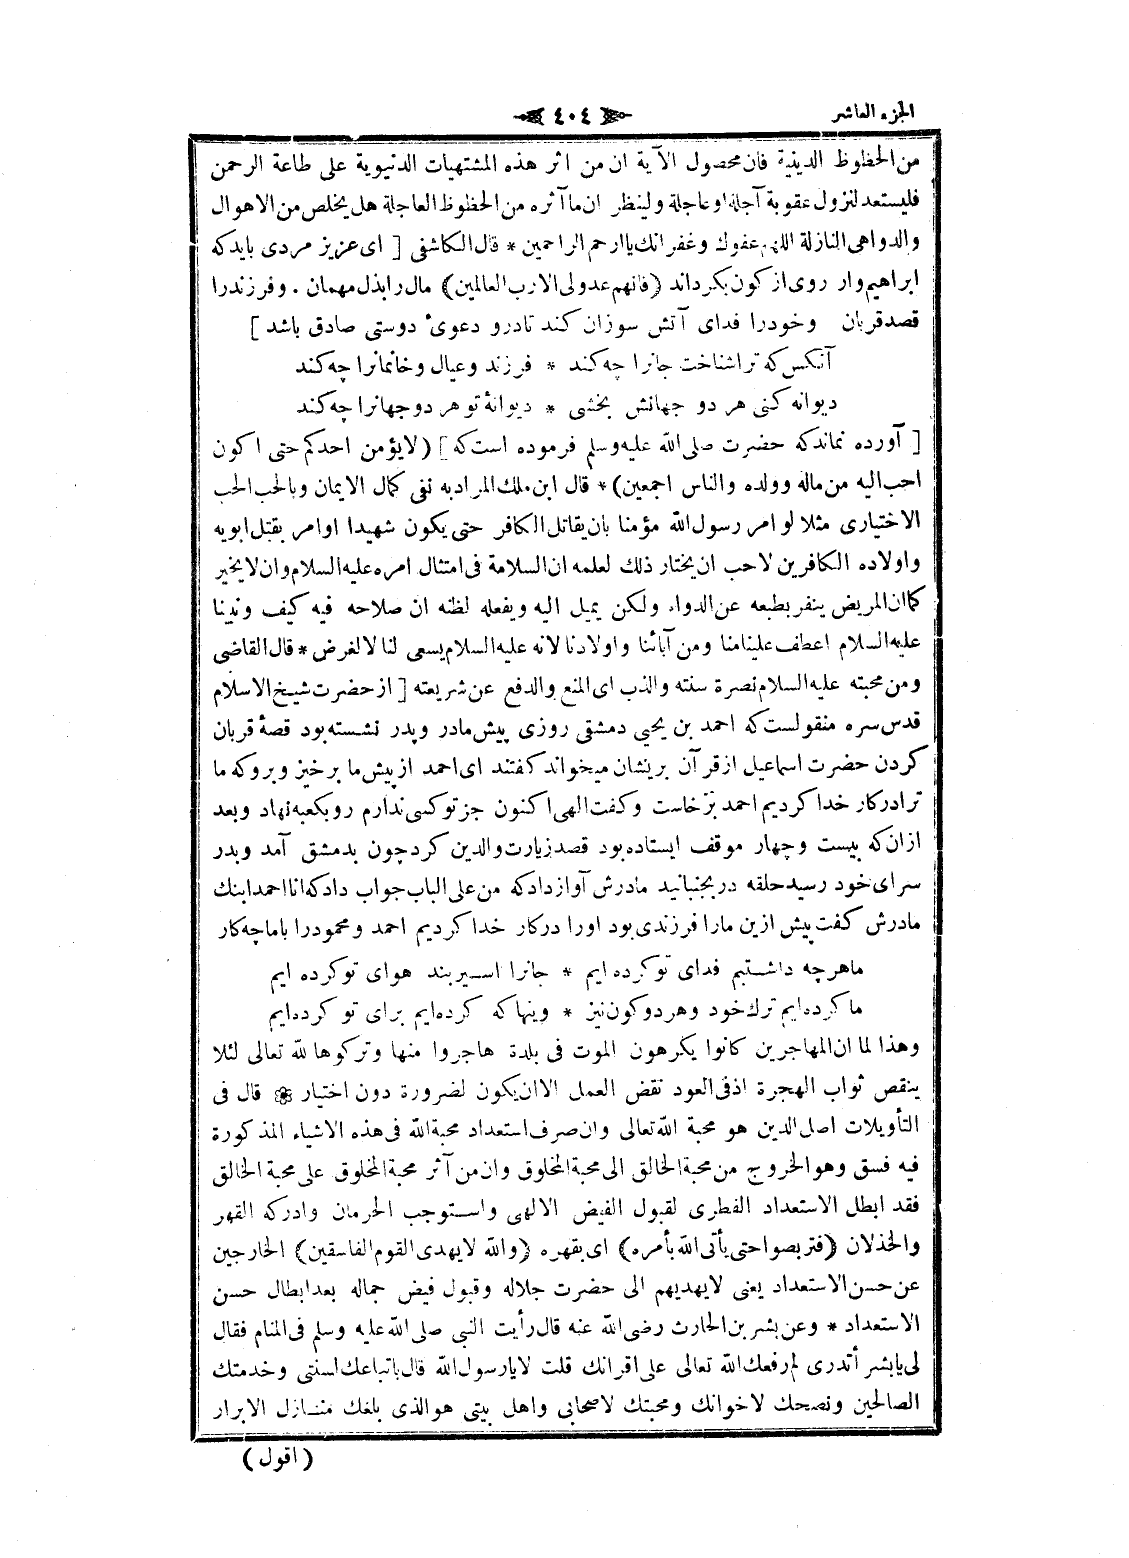 الجزء العاشر
٤٠٤
من الحظوظ الدينية فان محصول الآية ان من اثر هذه المشتهيات الدنيوية على طاعة الرحمن
فليستعد لنزول عقوبة آجلة او عاجلة ولينظر ان ما آثره من الحظوظ العاجلة هل يخلص من الاهوال
والدواهى النازلة اللهم عفوك وغفرانك ياارحم الراحمين * قال الكاشفى [ اى عزيز مردى بايدكه
ابراهيم وار روى از كون بكرداند (فانهم عدولى الارب العالمين) مال را بذل مهمان . وفرزندرا
قصد قربان وخودرا فداى آتش سوزان كند تادرو دعوىٔ دوستى صادق باشد ]
آنكس كه تراشناخت جانرا چه كند * فرزند وعيال وخانمانرا چه كند
ديوانه كنى هر دو جهانش بخشى * ديوانهٔ تو هر دوجهانرا چه كند
[ آورده نماندكه حضرت صلى الله عليه وسلم فرموده است كه ] (لايؤمن احدكم حتى اكون
احب اليه من ماله وولده والناس اجمعين) * قال ابن ملك المراد به نفى كمال الايمان وبالحب الحب
الاختيارى مثلا لو امر رسول الله مؤمنا بان يقاتل الكافر حتى يكون شهيدا اوامر بقتل ابويه
واولاده الكافرين لاحب ان يختار ذلك لعلمه ان السلامة فى امتثال امره عليه السلام وان لا يخير
كما ان المريض ينفر بطبعه عن الدواء ولكن يميل اليه ويفعله لظنه ان صلاحه فيه كيف ونبينا
عليه السلام اعطف علينا منا ومن آبائنا واولادنا لانه عليه السلام يسعى لنا لالغرض * قال القاضى
ومن محبته عليه السلام نصرة سنته والذب اى المنع والدفع عن شريعته [ از حضرت شيخ الاسلام
قدس سره منقولست كه احمد بن يحيى دمشقى روزى پيش مادر وپدر نشسته بود قصهٔ قربان
كردن حضرت اسماعيل از قرآن بريشان ميخواند كفتند اى احمد از پيش ما برخيز وبروكه ما
ترا در كار خدا كرديم احمد برخاست وكفت الهى اكنون جز تو كسى ندارم رو بكعبه نهاد وبعد
ازان كه بيست وچهار موقف ايستاده بود قصد زيارت والدين كرد چون بدمشق آمد وبدر
سراى خود رسيد حلقه در بجنبانيد مادرش آواز داد كه من على الباب جواب داد كه انا احمد ابنك
مادرش كفت پيش ازين مارا فرزندى بود اورا دركار خدا كرديم احمد ومحمودرا باما چه كار
ماهرچه داشتيم فداى تو كرده ايم * جانرا اسير بند هواى تو كرده ايم
ما كرده ايم ترك خود وهردو كون نيز * وينها كه كرده ايم براى تو كرده ايم
وهذا لما ان المهاجرين كانوا يكرهون الموت فى بلدة هاجروا منها وتركوها لله تعالى لئلا
ينقص ثواب الهجرة اذ فى العود نقض العمل الا ان يكون لضرورة دون اختيار ❁ قال فى
التأويلات اصل الدين هو محبة الله تعالى وان صرف استعداد محبة الله فى هذه الاشياء المذكورة
فيه فسق وهو الخروج من محبة الخالق الى محبة المخلوق وان من آثر محبة المخلوق على محبة الخالق
فقد ابطل الاستعداد الفطرى لقبول الفيض الالهى واستوجب الحرمان وادركه القهر
والخذلان (فتربصوا حتى يأتى الله بأمره) اى بقهره (والله لا يهدى القوم الفاسقين) الخارجين
عن حسن الاستعداد يعنى لا يهديهم الى حضرت جلاله وقبول فيض جماله بعد ابطال حسن
الاستعداد * وعن بشر بن الحارث رضى الله عنه قال رأيت النبى صلى الله عليه وسلم فى المنام فقال
لى يابشر أتدرى لم رفعك الله تعالى على اقرانك قلت لا يارسول الله قال باتباعك لسنتى وخدمتك
الصالحين ونصحك لاخوانك ومحبتك لاصحابى واهل بيتى هو الذى بلغك منازل الابرار
(اقول)